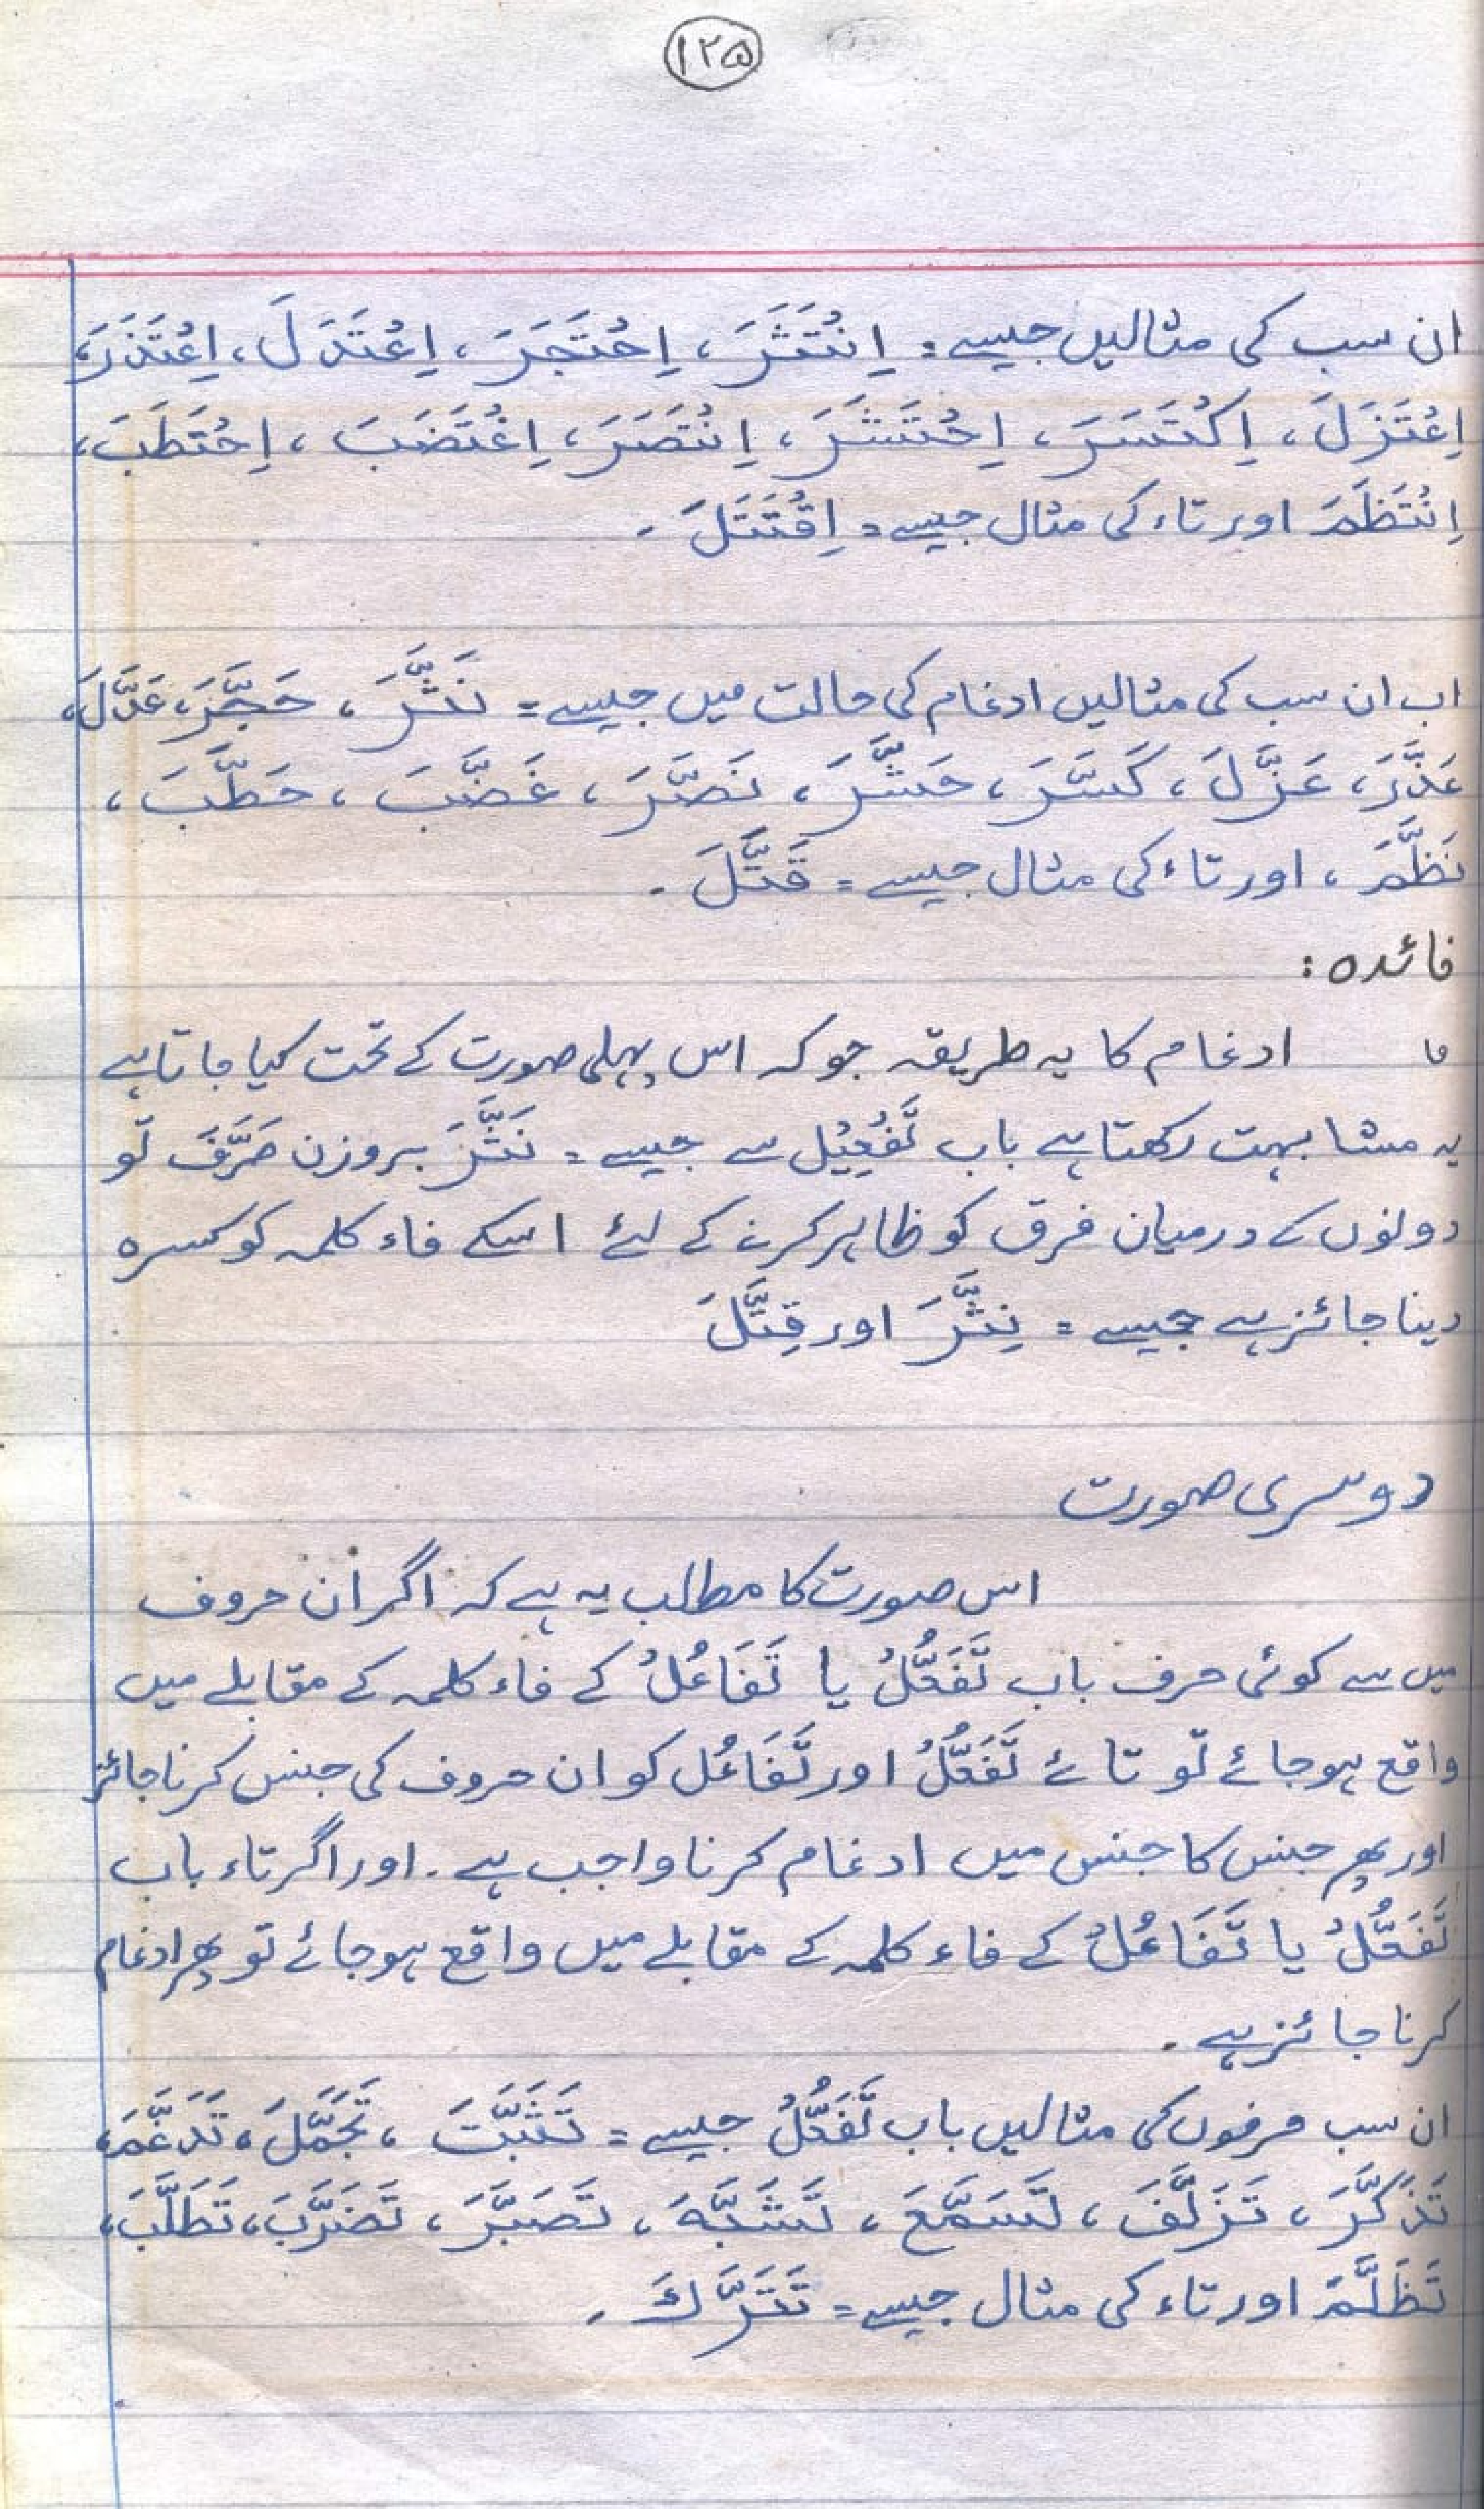 ۱۲۵
ان سب کی مثالیں جیسے = اِنْتَثَرَ ، اِحْتَجَرَ ، اِعْتَدَلَ ، اِعْتَذَرَ ،
اِعْتَزَلَ ، اِكْتَسَرَ ، اِحْتَشَرَ ، اِنْتَصَرَ ، اِغْتَضَبَ ، اِحْتَطَبَ ،
اِنْتَظَمَ اور تاء کی مثال جیسے = اِقْتَتَلَ ۔
اب ان سب کی مثالیں ادغام کی حالت میں جیسے = نَثَّرَ ، حَجَّرَ ، عَدَّلَ ،
عَذَّرَ ، عَزَّلَ ، كَسَّرَ ، حَشَّرَ ، نَصَّرَ ، غَضَّبَ ، حَطَّبَ ،
نَظَّمَ ، اور تاء کی مثال جیسے = قَتَّلَ ۔
فائدہ :
ادغام کا یہ طریقہ جو کہ اس پہلی صورت کے تحت کیا جاتا ہے
یہ مشابہت رکھتا ہے باب تَفْعِيْل سے جیسے = نَثَّرَ بروزن صَرَّفَ تو
دونوں کے درمیان فرق کو ظاہر کرنے کے لئے اسکے فاء کلمہ کو کسرہ
دینا جائز ہے جیسے = نِثَّرَ اور قِتَّلَ
دوسری صورت
اس صورت کا مطلب یہ ہے کہ اگر ان حروف
میں سے کوئی حرف باب تَفَعُّلُ یا تَفَاعُلُ کے فاء کلمہ کے مقابلے میں
واقع ہو جائے تو تائے تَفَعُّلُ اور تَفَاعُل کو ان حروف کی جنس کرنا جائز
اور پھر جنس کا جنس میں ادغام کرنا واجب ہے ۔ اور اگر تاء باب
تَفَعُّلُ یا تَفَاعُلُ کے فاء کلمہ کے مقابلے میں واقع ہو جائے تو پھر ادغام
کرنا جائز ہے ۔
ان سب حرفوں کی مثالیں باب تَفَعُّلُ جیسے = تَثَبَّتَ ، تَجَمَّلَ ، تَدَغَّمَ ،
تَذَكَّرَ ، تَزَلَّفَ ، تَسَمَّعَ ، تَشَبَّهَ ، تَصَبَّرَ ، تَضَرَّبَ ، تَطَلَّبَ ،
تَظَلَّمَ اور تاء کی مثال جیسے = تَتَرَّكَ ۔